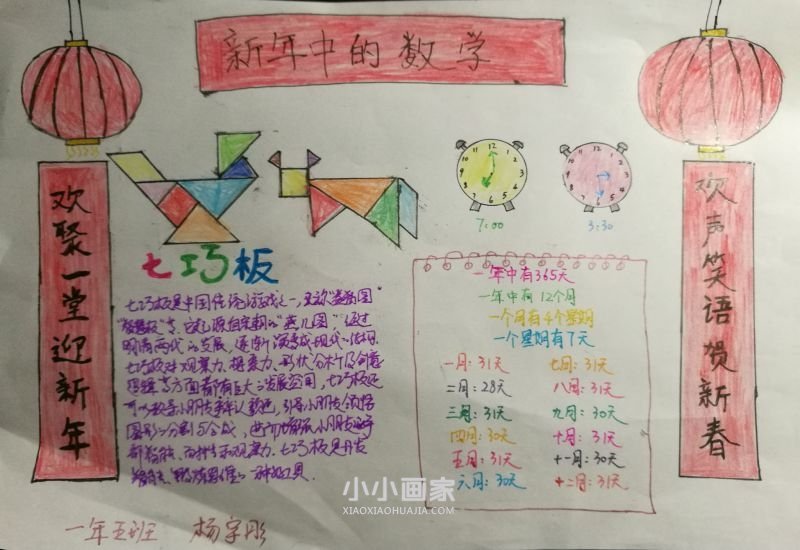 新年中的数学
欢聚一堂迎新年
欢声笑语贺新春
12 1 2 3 4 5 6 7 8 9 10 11
7:00
12 1 2 3 4 5 6 7 8 9 10 11
3:30
七巧板
七巧板是中国传统游戏之一，又称
等，它起源自宋朝的"燕几图"，经过
明清两代的发展，逐渐演变成现代的
七巧板对观察力、想象力、形状分析及创意
都有巨大的发展空间，七巧板还
可以教导小朋友辨认颜色，引导小朋友领悟
图形的分割与合成，进而增强小朋友的
和观察力。七巧板是开发
的一种好工具.
一年中有365天
一年中有12个月
一个月有4个星期
一个星期有7天
一月:31天 七月:31天
二月:28天 八月:31天
三月:31天 九月:30天
四月:30天 十月:31天
五月:31天 十一月:30天
六月:30天 十二月:31天
小小画家
XIAOXIAOHUAJIA.COM
一年五班 杨宇彤